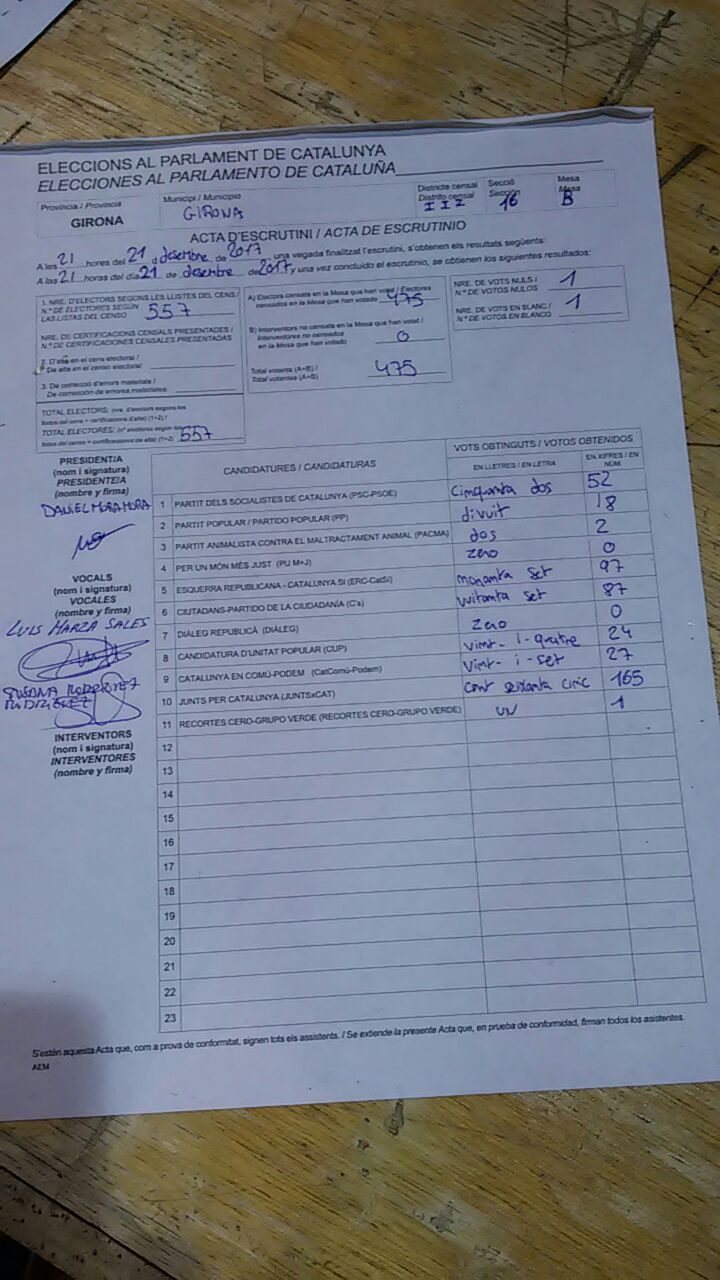 ELECCIONS AL PARLAMENT DE CATALUNYA
ELECCIONES AL PARLAMENTO DE CATALUÑA
Província / Provincia
GIRONA
Municipi / Municipio
GIRONA
Districte censal
Distrito censal
III
Secció
Sección
16
Mesa
Mesa
B
ACTA D'ESCRUTINI / ACTA DE ESCRUTINIO
A les 21 hores del 21 d desembre de 2017 una vegada finalitzat l'escrutini, s'obtenen els resultats següents:
A las 21 horas del día 21 de desembre de 2017 y una vez concluido el escrutinio, se obtienen los siguientes resultados:
1. NRE. D'ELECTORS SEGONS LES LLISTES DEL CENS /
N.º DE ELECTORES SEGÚN
LAS LISTAS DEL CENSO 557
NRE. DE CERTIFICACIONS CENSALS PRESENTADES /
N.º DE CERTIFICACIONES CENSALES PRESENTADAS
2. D'alta en el cens electoral /
De alta en el censo electoral:
3. De correcció d'errors materials /
De corrección de errores materiales:
TOTAL ELECTORS: (nre. d'electors segons les
llistes del cens + certificacions d'alta) (1+2) /
TOTAL ELECTORES: (nº electores según las
listas del censo + certificaciones de alta) (1+2) 557
A) Electors censats en la Mesa que han votat / Electores
censados en la Mesa que han votado 475
B) Interventors no censats en la Mesa que han votat /
Interventores no censados
en la Mesa que han votado 0
Total votants (A+B) /
Total votantes (A+B) 475
NRE. DE VOTS NULS /
N.º DE VOTOS NULOS 1
NRE. DE VOTS EN BLANC /
N.º DE VOTOS EN BLANCO 1
PRESIDENT/A
(nom i signatura)
PRESIDENTE/A
(nombre y firma)
DANIEL MORA MORA
VOCALS
(nom i signatura)
VOCALES
(nombre y firma)
LUIS MARZA SALES
SUSANA RODRIGUEZ
RODRIGUEZ
INTERVENTORS
(nom i signatura)
INTERVENTORES
(nombre y firma)
CANDIDATURES / CANDIDATURAS
VOTS OBTINGUTS / VOTOS OBTENIDOS
EN LLETRES / EN LETRA
EN XIFRES / EN NÚM.
1 PARTIT DELS SOCIALISTES DE CATALUNYA (PSC-PSOE) Cinquanta dos 52
2 PARTIT POPULAR / PARTIDO POPULAR (PP) divuit 18
3 PARTIT ANIMALISTA CONTRA EL MALTRACTAMENT ANIMAL (PACMA) dos 2
4 PER UN MÓN MÉS JUST (PU M+J) zero 0
5 ESQUERRA REPUBLICANA - CATALUNYA SÍ (ERC-CatSí) noranta set 97
6 CIUTADANS-PARTIDO DE LA CIUDADANÍA (C's) vuitanta set 87
7 DIÀLEG REPUBLICÀ (DIÀLEG) zero 0
8 CANDIDATURA D'UNITAT POPULAR (CUP) vint-i-quatre 24
9 CATALUNYA EN COMÚ-PODEM (CatComú-Podem) vint-i-set 27
10 JUNTS PER CATALUNYA (JUNTSxCAT) cent seixanta cinc 165
11 RECORTES CERO-GRUPO VERDE (RECORTES CERO-GRUPO VERDE) UN 1
12
13
14
15
16
17
18
19
20
21
22
23
S'estén aquesta Acta que, com a prova de conformitat, signen tots els assistents. / Se extiende la presente Acta que, en prueba de conformidad, firman todos los asistentes.
AEM